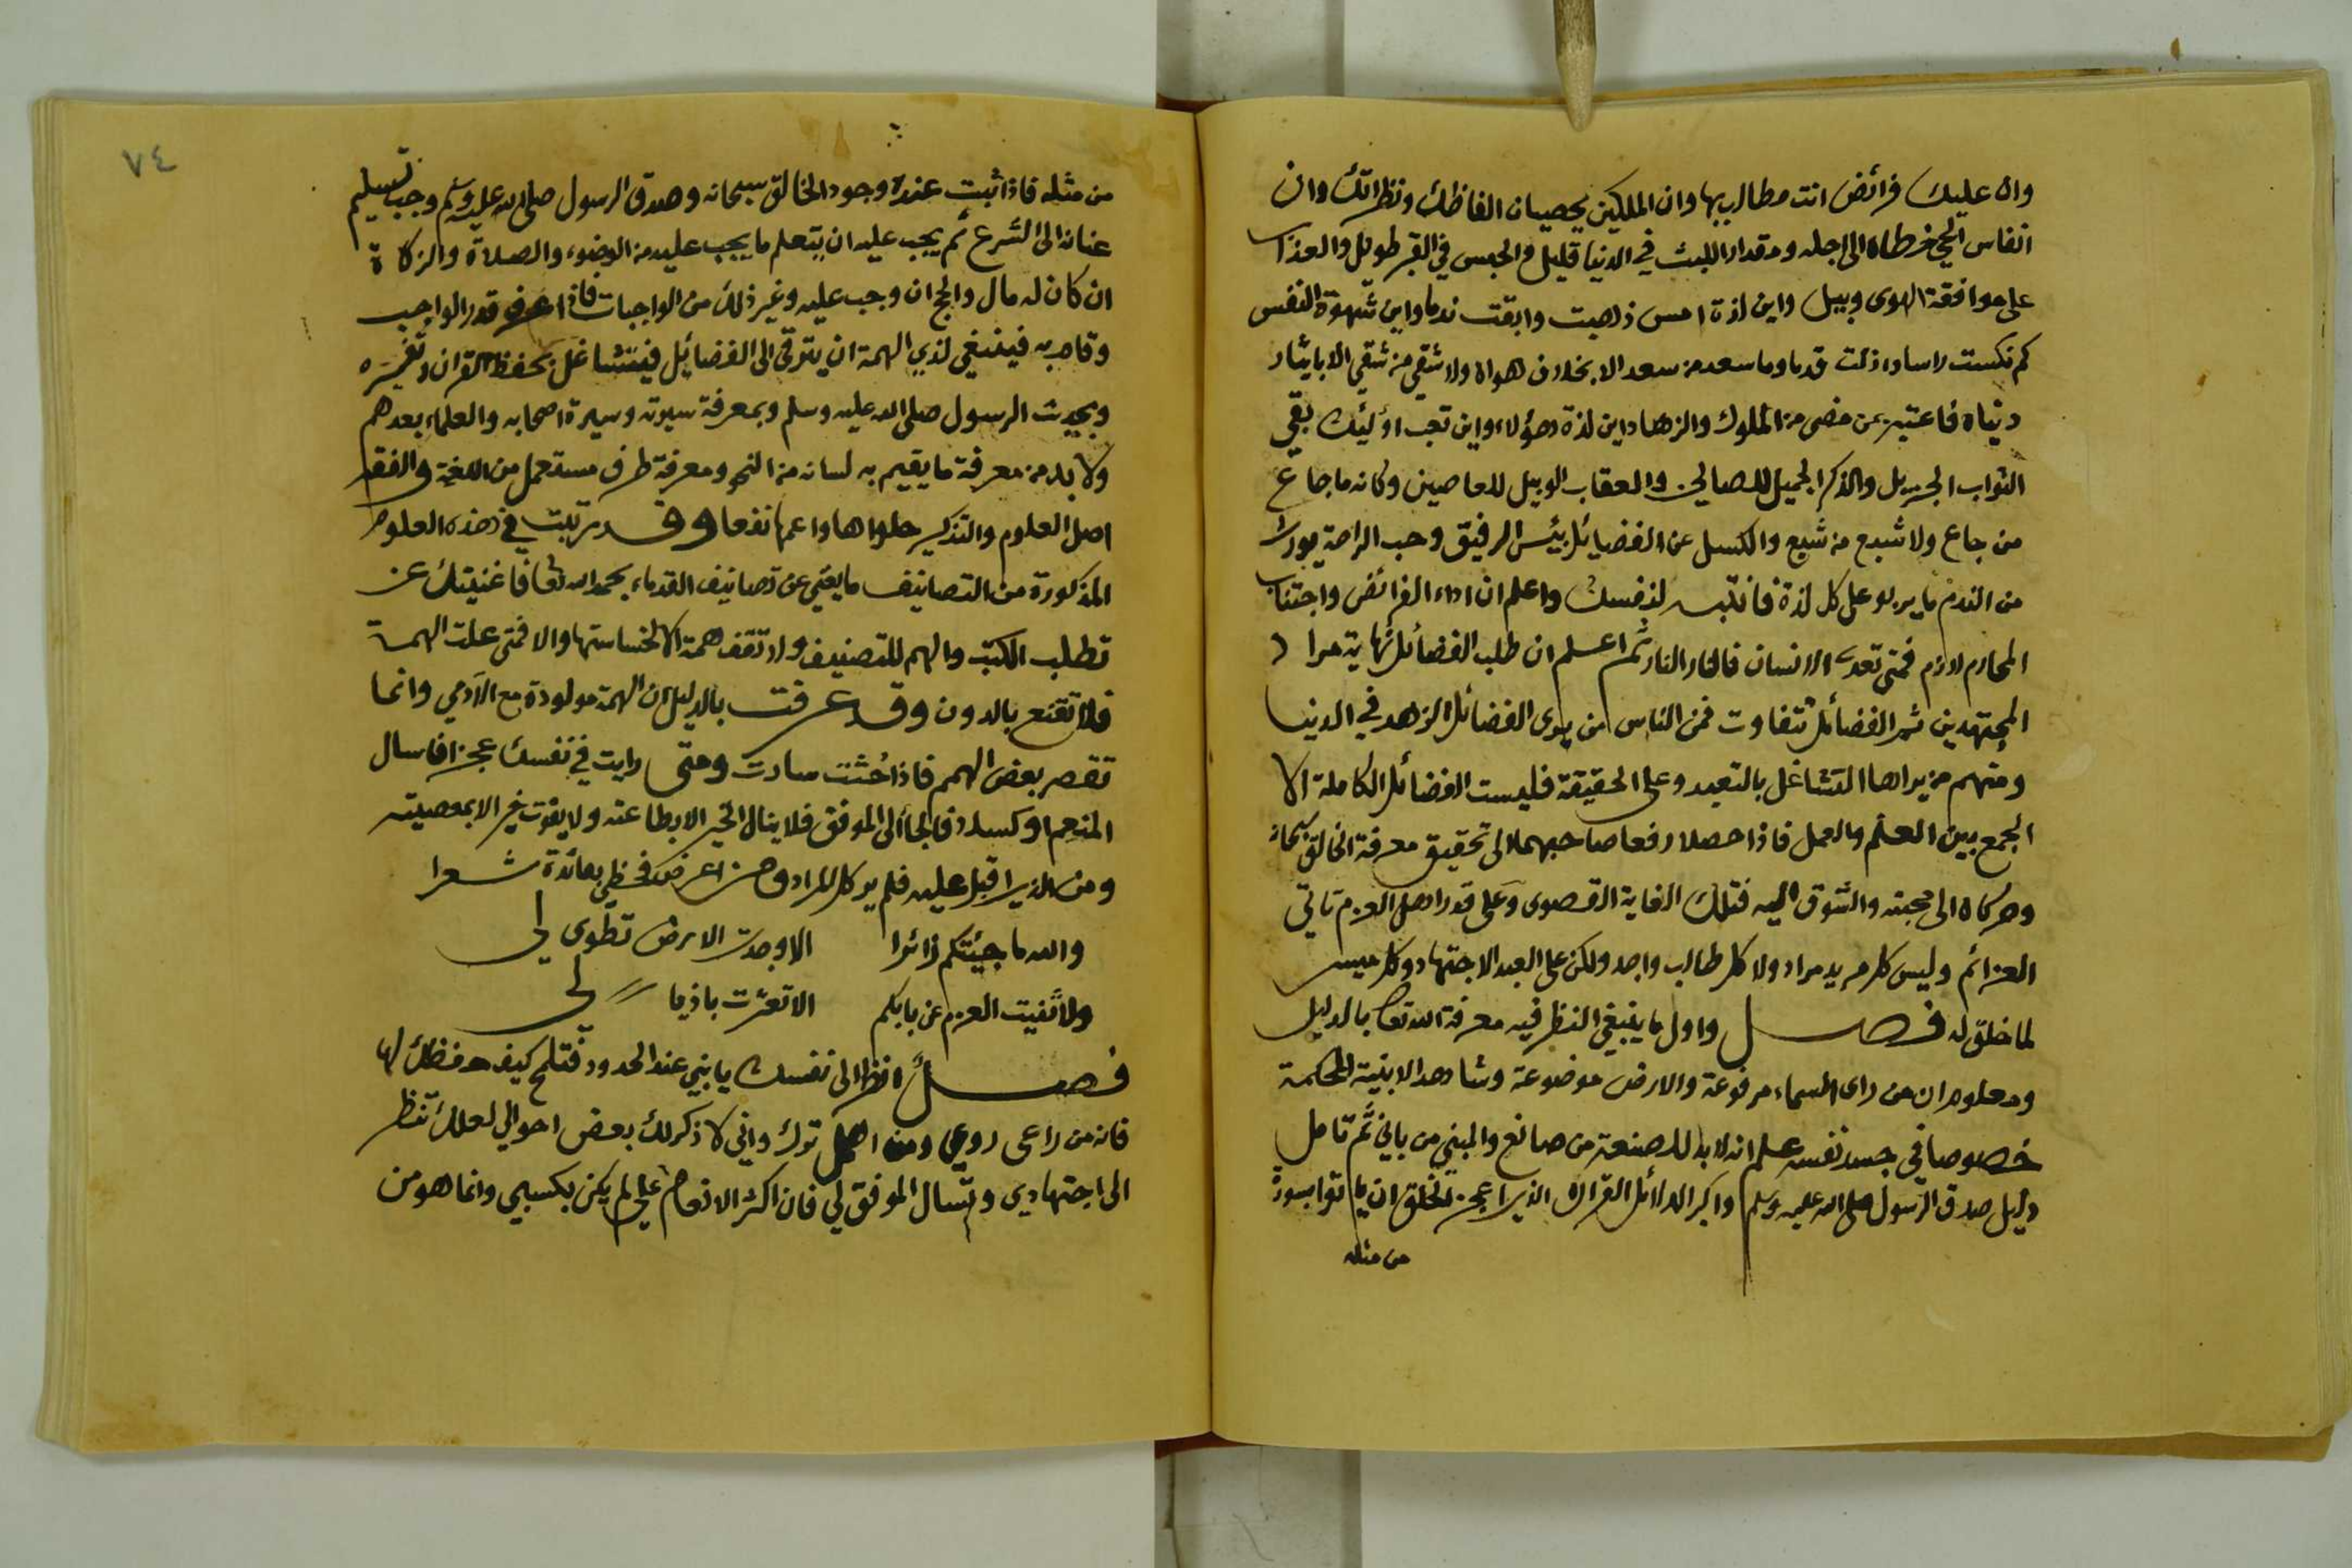 وان عليك فرائض انت مطالب بها وان الملكين يحصيان الفاظك ونظراتك وان
انفاس الحي خطاه الى اجله ومقدار اللبث في الدنيا قليل والحبس في القبر طويل والعذاب
على موافقة الهوى وبيل واين لذة امس ذهبت وابقت ندما واين شهوة النفس
كم نكست راسا واذلت قدما وما سعد من سعد الا بخلاف هواه ولا شقي من شقي الا بايثار
دنياه فاعتبر بمن مضى من الملوك والزهاد اين لذة هؤلاء واين تعب اولئك بقي
الثواب الجزيل والذكر الجميل للصالحين والعقاب الوبيل للعاصين وكانه ما جاع
من جاع ولا شبع من شبع والكسل عن الفضائل بئس الرفيق وحب الراحة يورث
من الندم ما يربو على كل لذة فانتبه لنفسك واعلم ان اداء الفرائض واجتناب
المحارم لازم فمتى تعدى الانسان فالنار النار ثم اعلم ان طلب الفضائل نهاية مراد
المجتهدين ثم الفضائل تتفاوت فمن الناس من يرى الفضائل الزهد في الدنيا
ومنهم من يراها التشاغل بالتعبد وعلى الحقيقة فليست الفضائل الكاملة الا
الجمع بين العلم والعمل فاذا حصلا رفعا صاحبهما الى تحقيق معرفة الخالق سبحانه
وحركاه الى محبته والشوق اليه فتلك الغاية القصوى وعلى قدر اهل العزم تاتي
العزائم وليس كل مريد مراد ولا كل طالب واجد ولكن على العبد الاجتهاد وكل ميسر
لما خلق له فصل واول ما ينبغي النظر فيه معرفة الله تعالى بالدليل
ومعلوم ان من راى السماء مرفوعة والارض موضوعة وشاهد الابنية المحكمة
خصوصا في جسد نفسه علم انه لا بد للصنعة من صانع والمبني من باني ثم تامل
دليل صدق الرسول صلى الله عليه وسلم واكبر الدلائل القران الذي اعجز الخلق ان ياتوا بسورة
من مثله
٧٤
من مثله فاذا ثبت عنده وجود الخالق سبحانه وصدق الرسول صلى الله عليه وسلم وجب تسليم
عنانه الى الشرع ثم يجب عليه ان يتعلم ما يجب عليه من الوضوء والصلاة والزكاة
ان كان له مال والحج ان وجب عليه وغير ذلك من الواجبات فاذا عرف قدر الواجب
وقام به فينبغي لذي الهمة ان يترقى الى الفضائل فيتشاغل بحفظ القران وتفسيره
وبحديث الرسول صلى الله عليه وسلم وبمعرفة سيرته وسيرة اصحابه والعلماء بعدهم
ولا بد من معرفة ما يقيم به لسانه من النحو ومعرفة طرف مستعمل من اللغة والفقه
اصل العلوم والتذكير حلواها واعمها نفعا وقد رتبت في هذه العلوم
المذكورة من التصانيف ما يغني عن تصانيف القدماء بحمد الله تعالى فاغنيتك عن
تطلب الكتب والهم للتصنيف ولا تقف همة الا لخساستها والا فمتى علت الهمة
فلا تقنع بالدون وقد عرفت بالدليل ان الهمة مولودة مع الآدمي وانما
تقصر بعض الهمم فاذا حثت سارت ومتى رايت في نفسك عجزا فاسال
المنعم او كسلا فالجأ الى الموفق فلا ينال الخير الا بطاعته ولا يفوت خير الا بمعصيته
ومن الذي اقبل عليه فلم ير كل المراد ومن اعرض فحظي بفائدة شعرا
والله ما جئتكم زائرا الا وجدت الارض تطوى لي
ولا ثنيت العزم عن بابكم الا تعثرت باذيالي
فصل انظر الى نفسك يا بني عند الحدود فتلمح كيف حفظك لها
فانه من راعى روعي ومن اهمل ترك واني لاذكر لك بعض احوالي لعلك تنظر
الى اجتهادي وتسال الموفق لي فان اكثر الانعام علي لم يكن بكسبي وانما هو من